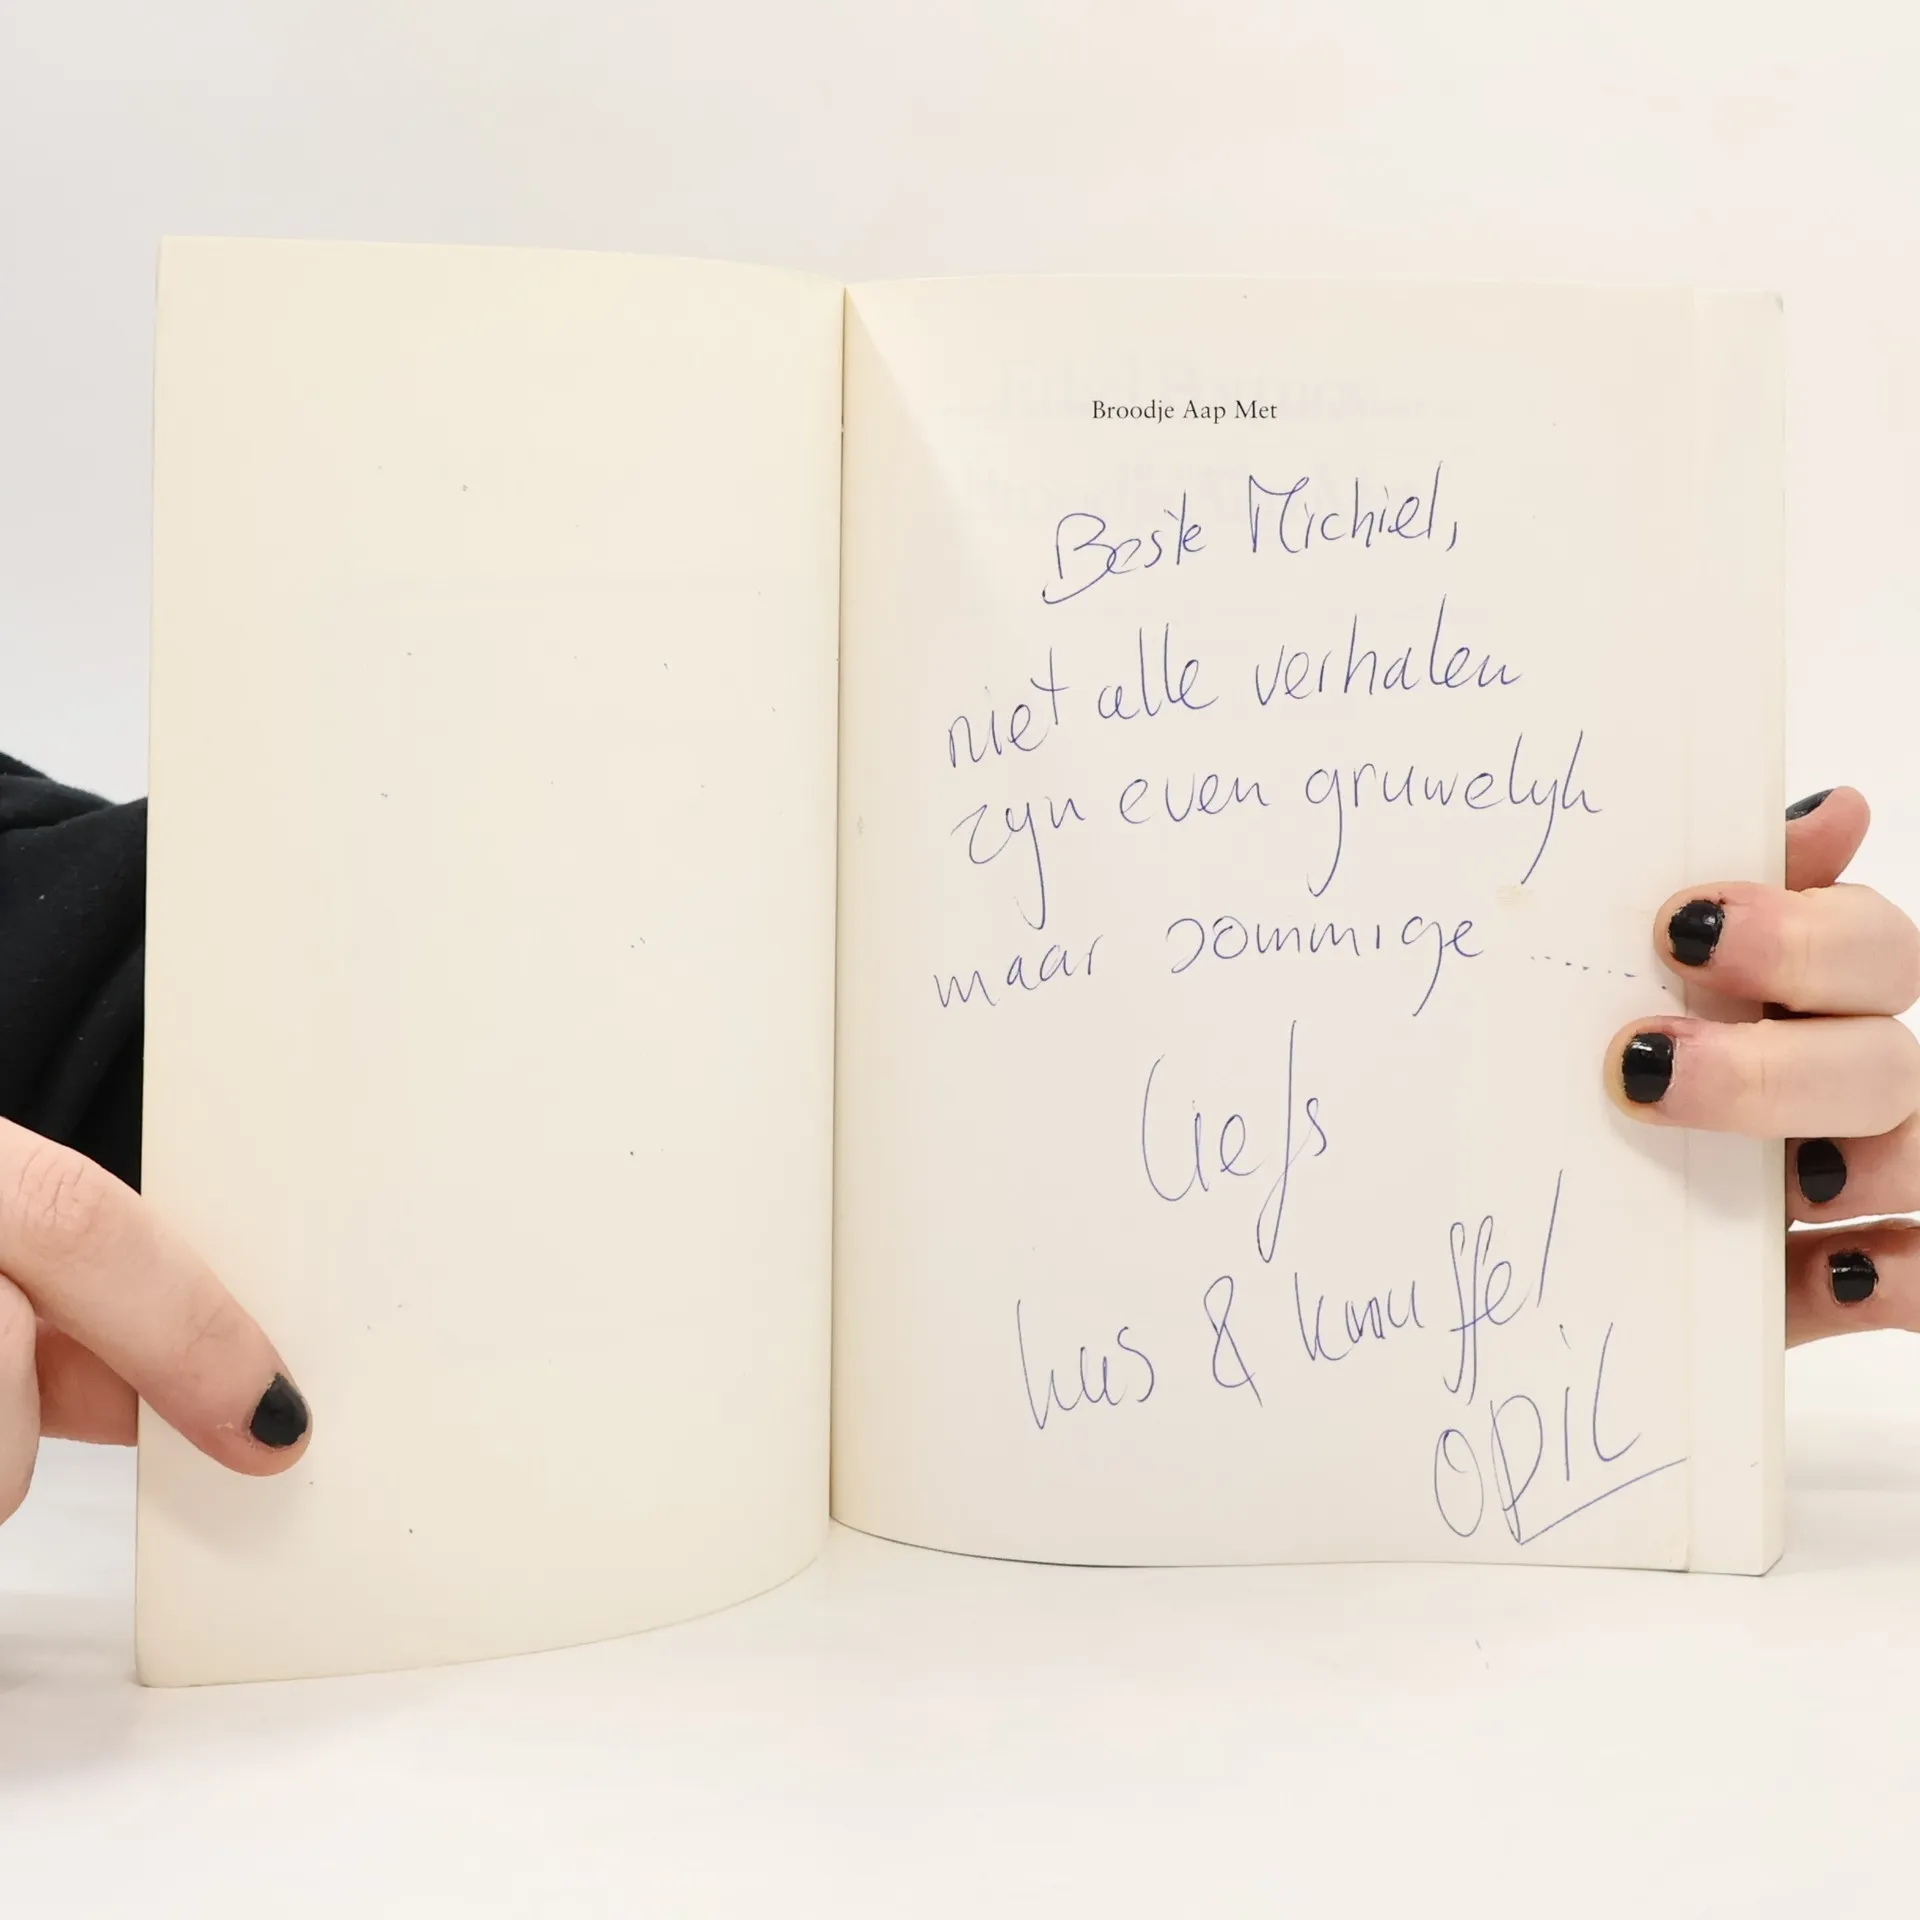 Broodje Aap Met
Beste Michiel,
niet alle verhalen
zijn even gruwelijk
maar sommige ......
liefs
kus & knuffel
ODIL